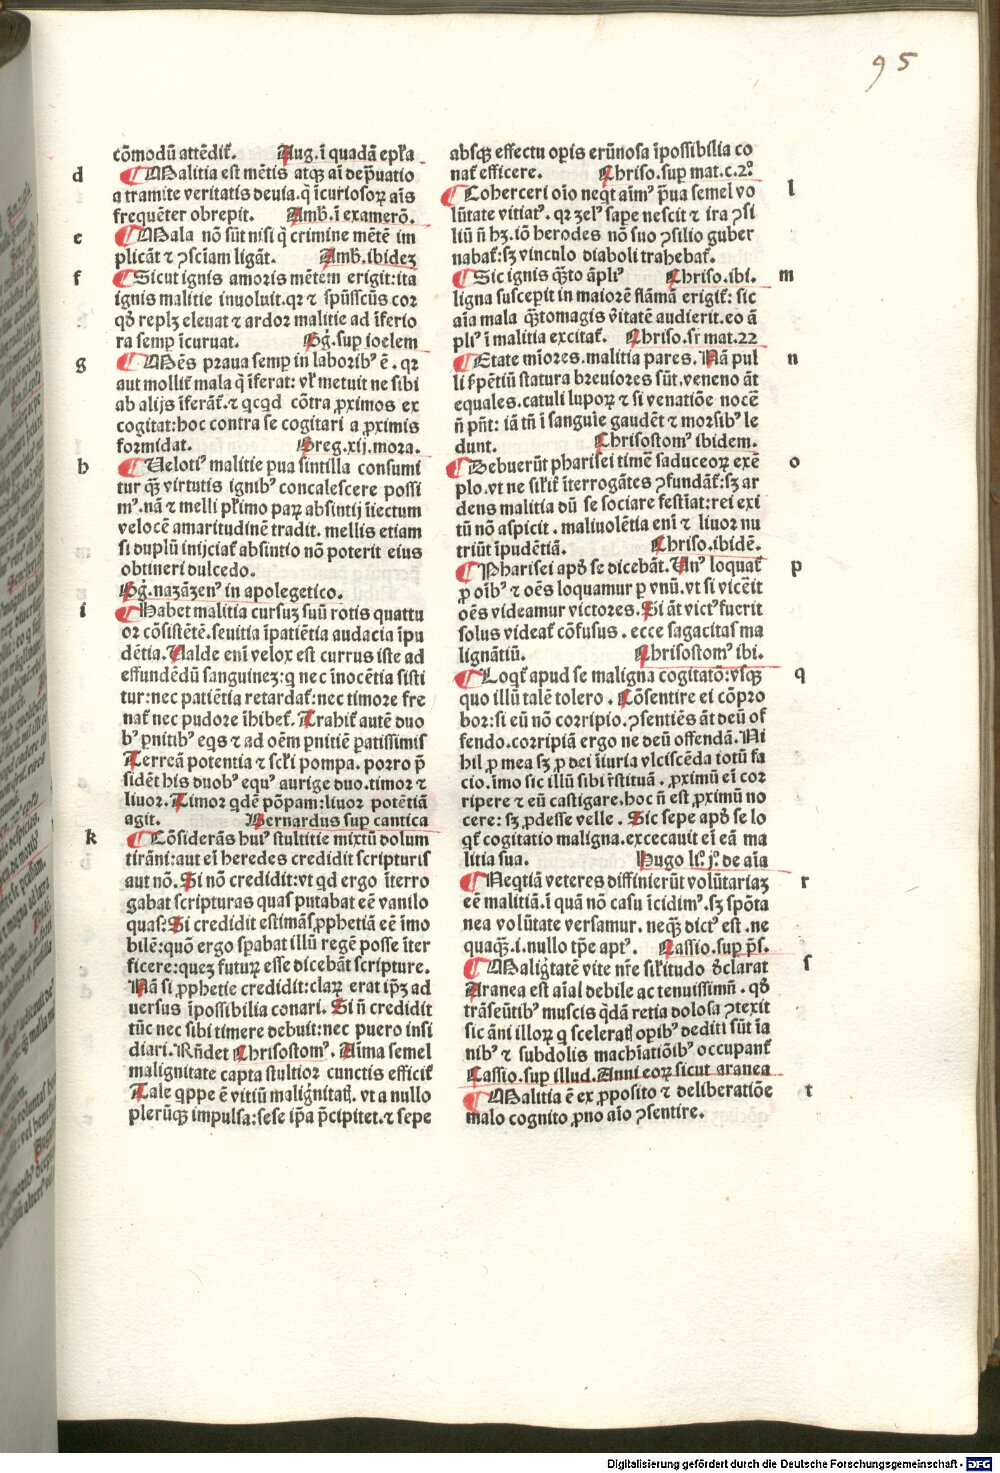 95
cōmodū attēdit᷑. Aug. ī quadā epl̄a
d
¶ Malitia est mētis atqꝫ aī dep̄uatio
a tramite veritatis deuia. q̄ īcuriosoꝝ aīs
frequēter obrepit. Amb̄. ī examerō.
e
¶ Mala nō sūt nisi q̄ crimine mētē im
plicāt ⁊ ꝯsciam ligāt. Amb̄. ibideꝫ
f
¶ Sicut ignis amoris mētem erigit: ita
ignis malitie inuoluit. qꝛ ⁊ spūssc̄us cor
qḋ replꝫ eleuat ⁊ ardor malitie ad īferio
ra semꝑ īcuruat. Gġ. suꝑ ioelem
g
¶ Mēs praua semꝑ in laborib᷒ ē. qꝛ
aut molit᷑ mala q̄ īferat: vl᷑ metuit ne sibi
ab alijs īferāt᷑. ⁊ qcqd cōtra ꝓximos ex
cogitat: hoc contra se cogitari a ꝓximis
formidat. Greg. xij. mora.
h
¶ Veloti᷒ malitie pua sintilla consumi
tur qꝫ̄ virtutis ignib᷒ concalescere possi
m᷒. nā ⁊ melli pl᷑imo paꝝ absintij īiectum
velocē amaritudinē tradit. mellis etiam
si duplū inijciat᷑ absintio nō poterit eius
obtineri dulcedo.
Gġ. nazāzen᷒ in apolegetico.
i
¶ Habet malitia cursuꝫ suū rotis quattu
or cōsistētē. seuitia īpatiētia audacia īpu
dētia. Valde enī velox est currus iste ad
effundēdū sanguineꝫ: q nec īnocētia sisti
tur: nec patiētia retardat᷑: nec timore fre
nat᷑ nec pudore īhibet᷑. Trahit᷑ autē duo
b᷒ ꝑnitib᷒ eqs ⁊ ad oēm ꝑnitiē ꝑatissimis
Terreā potentia ⁊ scl᷑i pompa. porro p̄
sidēt his duob᷒ equ᷒ aurige duo. timor ⁊
liuor. Timor qdē pōpam: liuor potētiā
agit. Bernardus suꝑ cantica
k
¶ Cōsiderās hui᷒ stultitie mixtū dolum
tirāni: aut eī heredes credidit scripturis
aut nō. Si nō credidit: vt qd ergo īterro
gabat scripturas quas putabat eē vanilo
quas: Si credidit estimās ꝓphetiā eē īmo
bilē: quō ergo sꝑabat illū regē posse īter
ficere: queꝫ futuꝝ esse dicebāt scripture.
Nā si ꝓphetie credidit: claꝝ erat ip̄ꝫ ad
uersus īpossibilia conari. Si n̄ credidit
tūc nec sibi timere debuit: nec puero insi
diari. Rn̄det Chrisostom᷒. Aīma semel
malignitate capta stultior cunctis efficit᷑
Tale qppe ē vitiū maliġnitatꝭ. vt a nullo
plerūqꝫ impulsa: sese ip̄a p̄cipitet. ⁊ sepe
absqꝫ effectu opis erūnosa īpossibilia co
nat᷑ efficere. Chriso. suꝑ mat. c. 2º
l
¶ Coherceri oīo neqt aīm᷒ p̄ua semel vo
lūtate vitiat᷒. qꝛ ꝫel᷒ sape nescit ⁊ ira ꝯsi
liū n̄ hꝫ. iō herodes nō suo ꝯsilio guber
nabat᷑: sꝫ vinculo diaboli trahebat᷑.
m
¶ Sic ignis qꝫ̄to āpli᷒ Chriso. ibi.
ligna susceꝑit in maiorē flāmā erigit᷑: sic
aīa mala qꝫ̄tomagis v̄itatē audierit. eo ā
pli᷒ ī malitia excitat᷑. Chriso. sr̄ mat. 22
n
¶ Etate mīores. malitia pares. Nā pul
li ẜpētiū statura breuiores sūt. veneno āt
equales. catuli lupoꝝ ⁊ si venatiōe nocē
n̄ pn̄t: iā tn̄ ī sanguīe gaudēt ⁊ morsib᷒ le
dunt. Chrisostom᷒ ibidem.
o
¶ Debuerūt pharisei timē saduceoꝝ exē
plo. vt ne sil᷑it᷑ īterrogātes ꝯfundāt᷑: sꝫ ar
dens malitia dū se sociare festīat: rei exi
tū nō aspicit. maliuolētia enī ⁊ liuor nu
triūt īpudētiā. Chriso. ibidē.
p
¶ Pharisei apḋ se dicebāt. Vn᷒ loquat᷑
ꝓ oīb᷒ ⁊ oēs loquamur ꝑ vnū. vt si vicēit
oēs videamur victores. Si āt vict᷒ fuerit
solus videat᷑ cōfusus. ecce sagacitas ma
lignātiū. Chrisostom᷒ ibi.
q
¶ Loqt᷑ apud se maligna cogitatō: vsqꝫ
quo illū talē tolero. Cōsentire ei cōpro
bor: si eū nō corripio. ꝯsentiēs āt deū of
fendo. corripiā ergo ne deū offendā. Ni
hil ꝓ mea sꝫ ꝓ dei īiuria vlciscēda totū fa
cio. īmo sic illū sibi r̄stituā. ꝓximū eī cor
ripere ⁊ eū castigare. hoc n̄ est ꝓximū no
cere: sꝫ ꝓdesse velle. Sic sepe apḋ se lo
qt᷑ cogitatio maligna. excecauit eī eā ma
litia sua. Hugo li. j. de aīa
r
¶ Neqtiā veteres diffinierūt volūtariaꝫ
eē malitiā. ī quā nō casu īcidim᷒. sꝫ spōta
nea volūtate versamur. neqꝫ̄ dict᷒ est. ne
quaqꝫ̄. i. nullo tp̄e apt᷒. Cassio. suꝑ p̄s.
s
¶ Maliġtatē vite nr̄e sil᷑itudo ḋclarat
Aranea est aīal debile ac tenuissimū. qḋ
trāseūtib᷒ muscis qdā retia dolosa ꝯtexit
sic āni illoꝝ q sceleratꝭ opib᷒ dediti sūt īa
nib᷒ ⁊ subdolis machīatiōib᷒ occupant᷑
Cassio. suꝑ illud. Anni eoꝝ sicut aranea
t
¶ Malitia ē ex ꝓposito ⁊ deliberatiōe
malo cognito ꝓno aīo ꝯsentire.
Digitalisierung gefördert durch die Deutsche Forschungsgemeinschaft - DFG